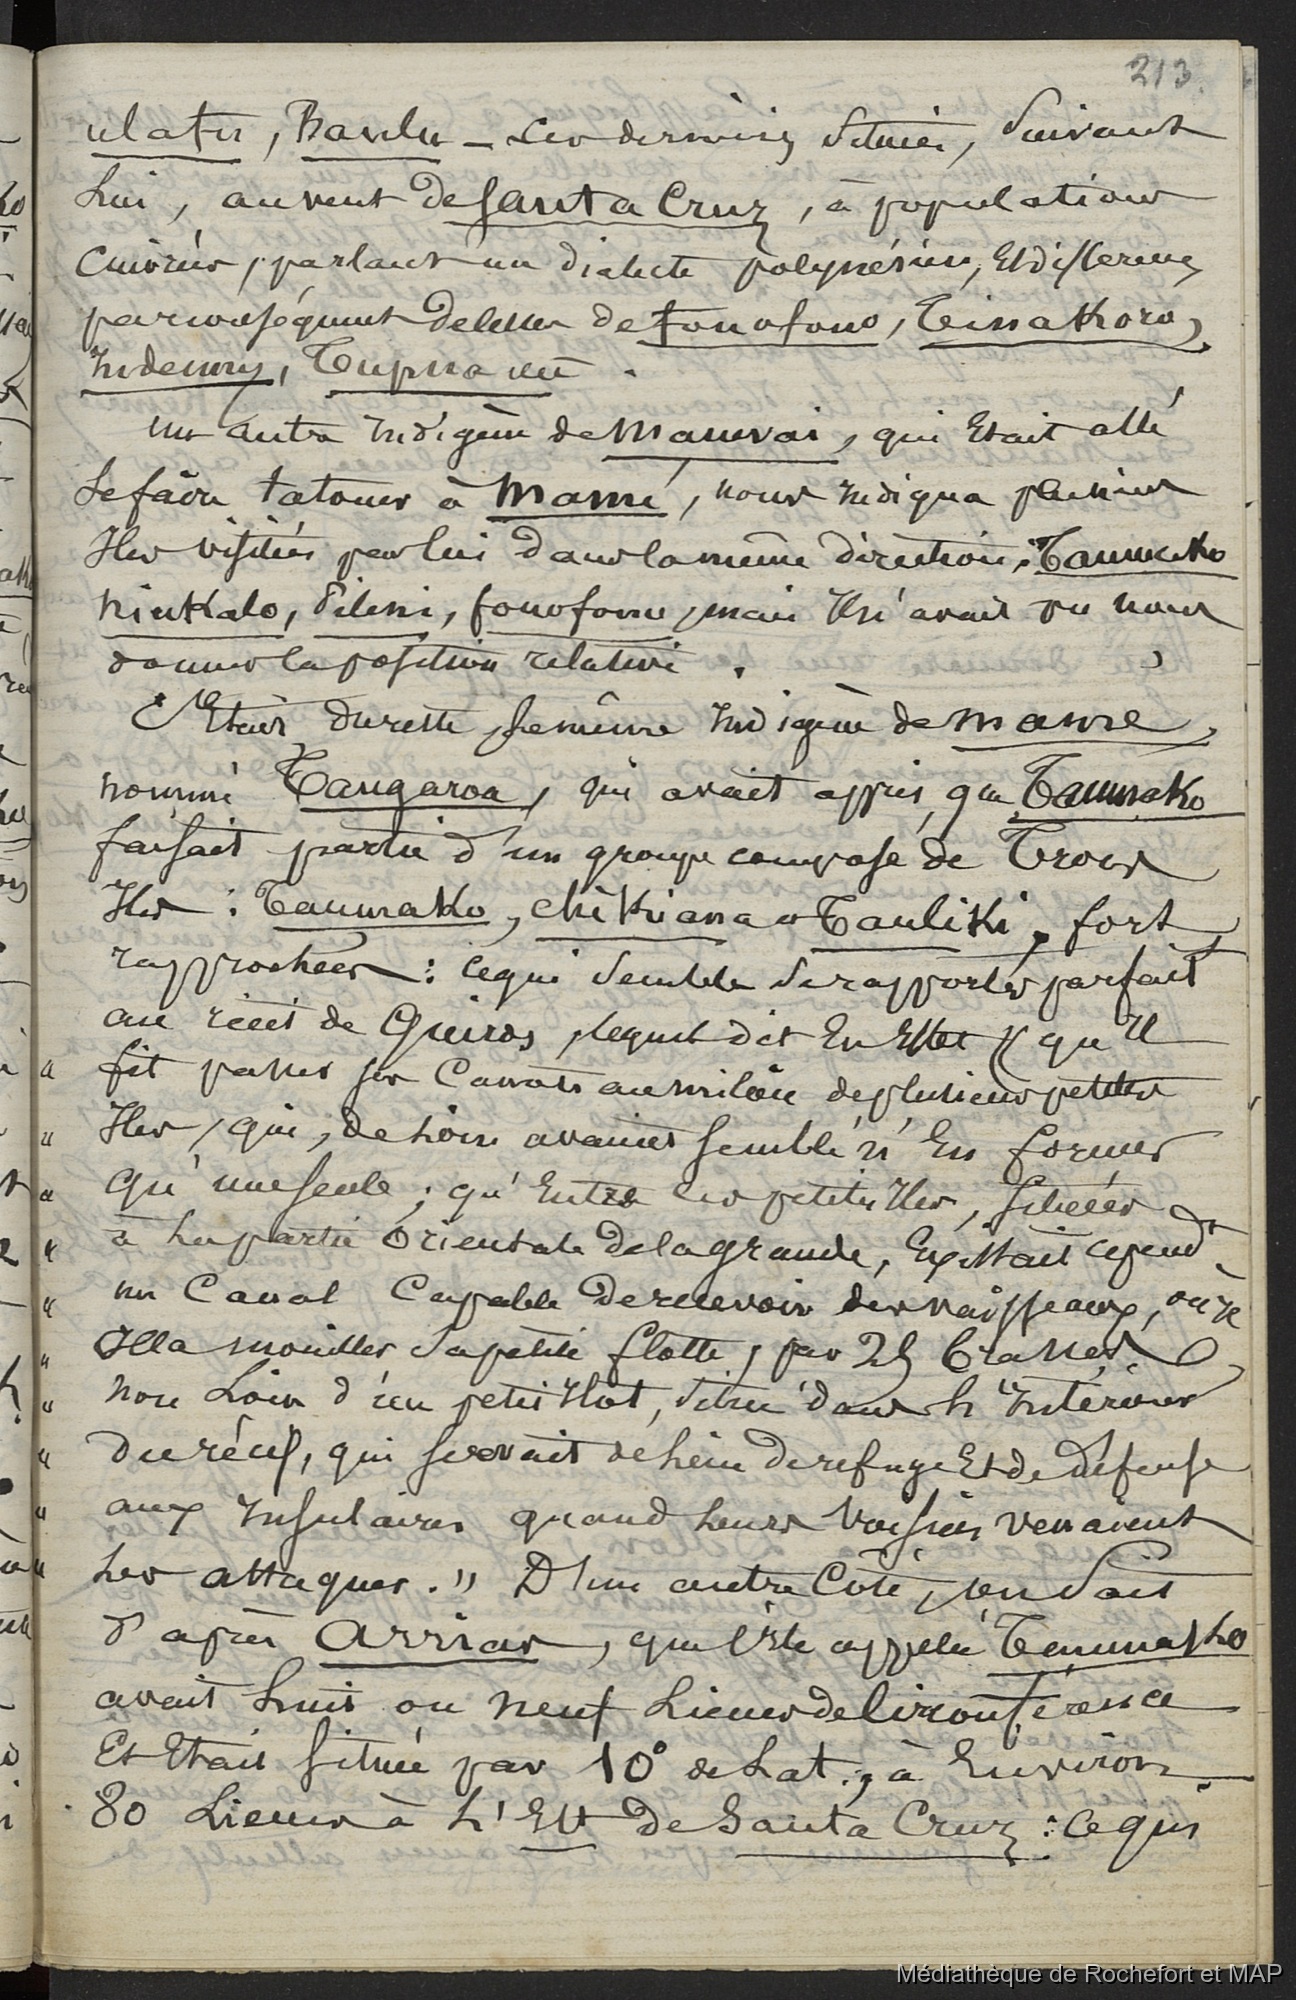 213.
ulatu, Banlu _ ces derniers situées, suivant
Lui, au vent de Santa Cruz, à population
cuivrées, parlant un dialecte polynésien, Et différent
par conséquent de celles de fonofono, Tinakoro,
Indenny, Tupua etc.
un autre Indigène de Manevai, qui Etait allé
se faire tatouer à Mami, nous Indiqua plusieurs
Iles visitées par lui dans la même direction : Taumako
Niukalo, Pileni, fonofono, mais Il n'avait pu nous
donner la position relative.
C'Etait du reste, le même Indigène de manre,
nommé Tangaroa, qui avait appris, que Taumako
faisait partie d'un groupe composé de Trois
Iles : Taumako, Chikiana et Tauliki, fort
rapprochées : ce qui semble se rapporter parfait
au récit de Quiros, lequel dit En Effet « qu'Il
« fit passer ses Canots au milieu de plusieurs petites
« Iles, qui, de Loin avaient semblé n'En former
« qu'une seule ; qu'Entre ces petites Iles, situées
« à La partie Orientale de la grande, Existait cepend.t
« un Canal Capable de recevoir des vaisseaux, où Il
« Alla mouiller sa petite flotte, par 25 brasses,
« non Loin d'un petit Ilot, situé dans L'Intérieur
« du récif, qui servait de Lieu de refuge Et de défense
« aux Insulaires quand Leurs Voisins Venaient
« Les attaquer. » D'un autre Côté, on sait
d'après Arrias, que l'Ile appelée Taumasko
avait huit ou neuf Lieues de Circonférence
Et Etait située par 10° de Lat., à Environ
80 Lieues à L'Est de Santa Cruz : ce qui
Médiathèque de Rochefort et MAP